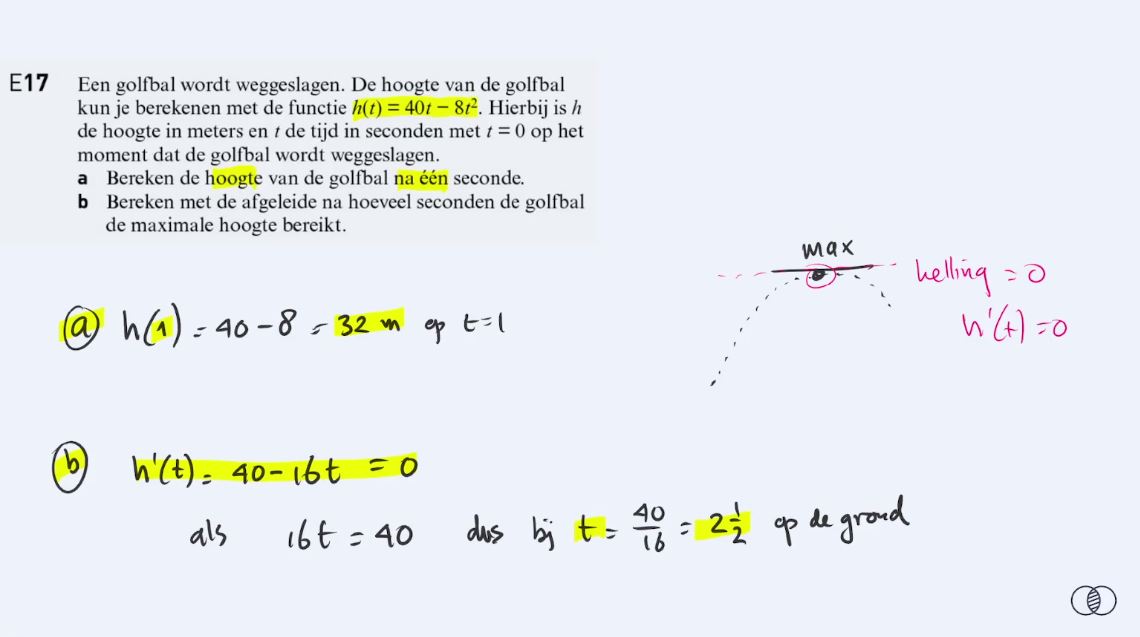 E17 Een golfbal wordt weggeslagen. De hoogte van de golfbal
kun je berekenen met de functie h(t) = 40t − 8t². Hierbij is h
de hoogte in meters en t de tijd in seconden met t = 0 op het
moment dat de golfbal wordt weggeslagen.
a Bereken de hoogte van de golfbal na één seconde.
b Bereken met de afgeleide na hoeveel seconden de golfbal
de maximale hoogte bereikt.
max
helling = 0
h'(t) = 0
a h(1) = 40 - 8 = 32 m op t = 1
b h'(t) = 40 - 16t = 0
als 16t = 40 dus bij t = 40/16 = 2 1/2 op de grond